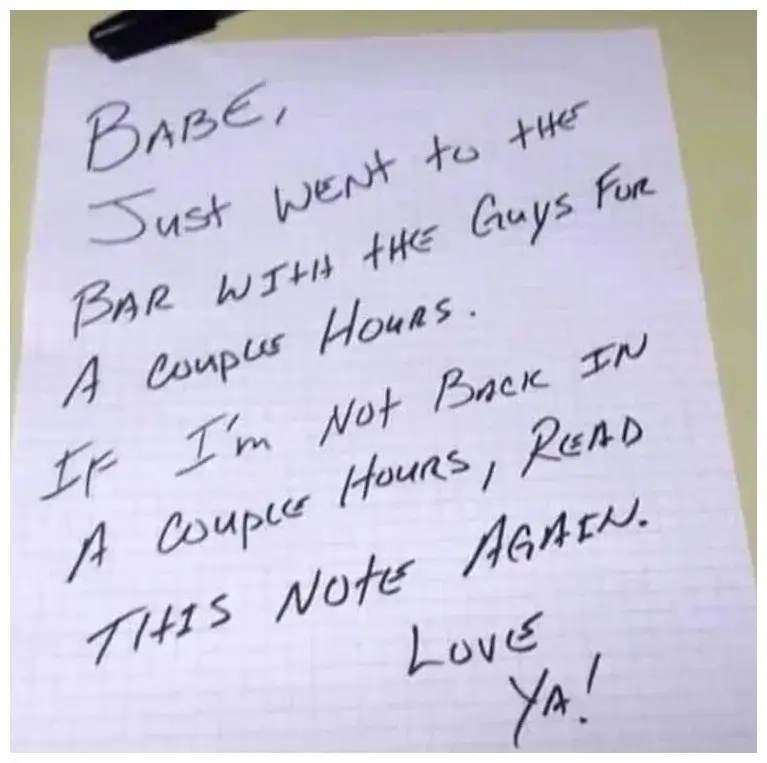 BABE,
JUST WENT TO THE
BAR WITH THE GUYS FOR
A COUPLE HOURS.
IF I'M NOT BACK IN
A COUPLE HOURS, READ
THIS NOTE AGAIN.
LOVE
YA!